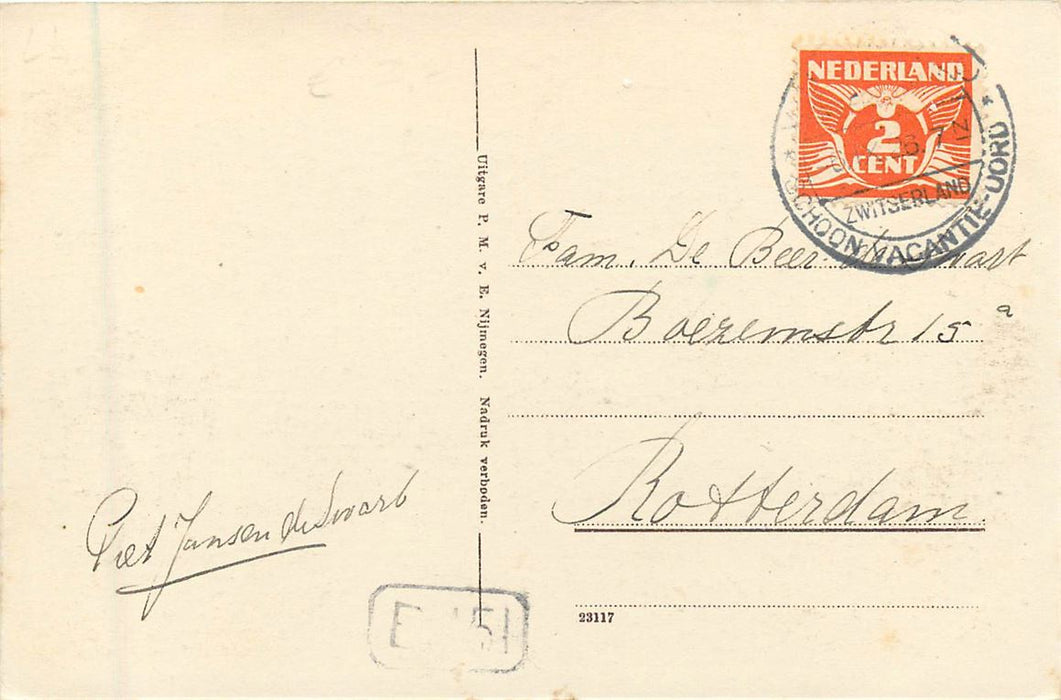 NEDERLAND
2
CENT
ZWITSERLAND
* SCHOON VACANTIE-OORD *
Fam. De Beer de Swart
Boezemstr 15 a
Rotterdam.
Uitgare P. M. v. E. Nijmegen. Nadruk verboden.
Piet Jansen de Swart
23117